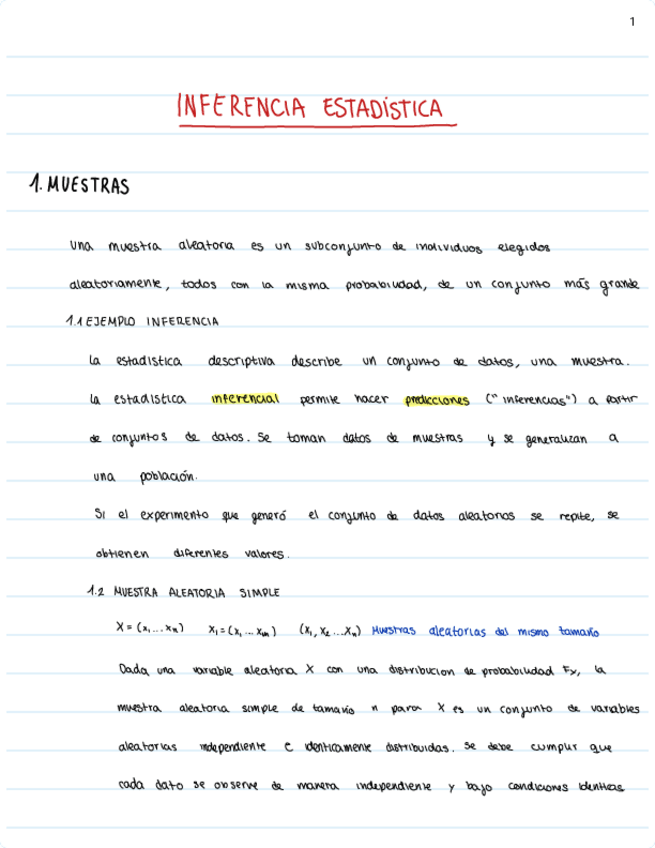 1
INFERENCIA ESTADÍSTICA
1. MUESTRAS
Una muestra aleatoria es un subconjunto de individuos elegidos
aleatoriamente, todos con la misma probabilidad, de un conjunto más grande
1.1 EJEMPLO INFERENCIA
La estadistica descriptiva describe un conjunto de datos, una muestra.
La estadistica inferencial permite hacer predicciones ("inferencias") a partir
de conjuntos de datos. Se toman datos de muestras y se generalizan a
una población.
Si el experimento que generó el conjunto de datos aleatorios se repite, se
obtienen diferentes valores.
1.2 MUESTRA ALEATORIA SIMPLE
X = (x₁ ... xₙ) X₁ = (x₁ ... xₘ) (X₁, X₂ ... Xₙ) Muestras aleatorias del mismo tamaño
Dada una variable aleatoria X con una distribucion de probabilidad Fx, la
muestra aleatoria simple de tamaño n para X es un conjunto de variables
aleatorias independiente e identicamente distribuidas. Se debe cumplir que
cada dato se observe de manera independiente y bajo condiciones identicas